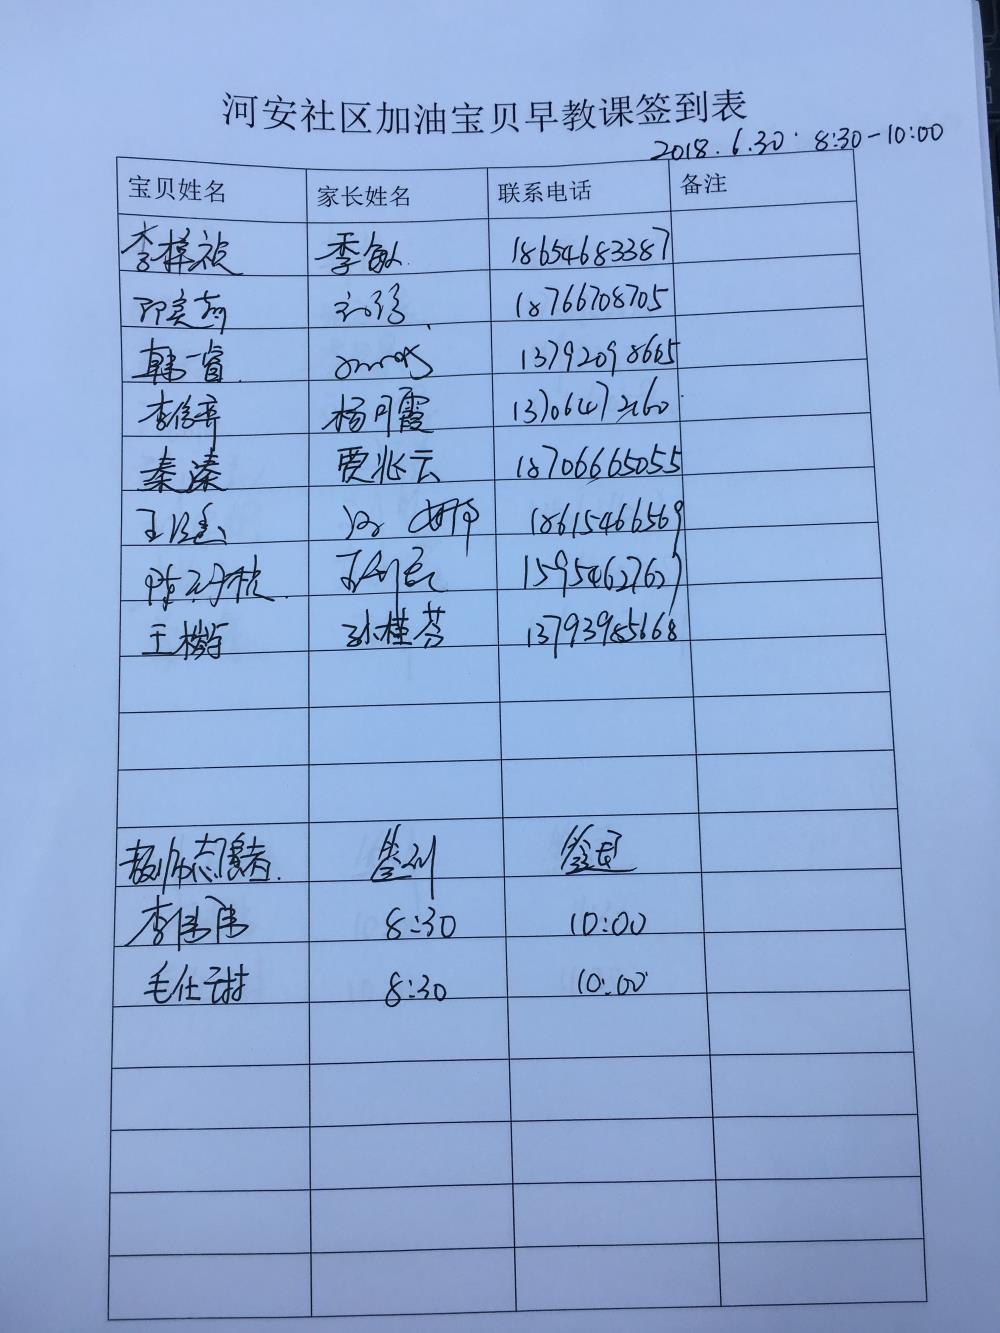 河安社区加油宝贝早教课签到表
2018.6.30. 8:30-10:00
宝贝姓名 家长姓名 联系电话 备注
李梓祯 季敏 18654683387
邵奕 18766708705
韩一睿 13792098665
李信 杨月霞 13706472160
秦溱 贾兆云 18706665055
王 18615466569
陈 15954627627
王 孙桂芬 13793985668
教师志愿者 签到 签退
李伟伟 8:30 10:00
毛仕 8:30 10:00